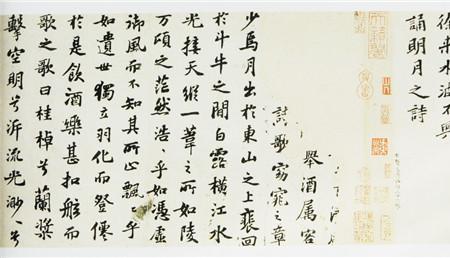 徐来水波不興
誦明月之詩
舉酒属客
歌窈窕之章
少焉月出於東山之上裵回
於斗牛之間白露橫江水
光接天縱一葦之所如陵
万頃之茫然浩〻乎如馮虛
御風而不知其所止飄〻乎
如遺世獨立羽化而登僊
於是飲酒樂甚扣舷而
歌之歌曰桂棹兮蘭槳
擊空明兮泝流光渺〻兮